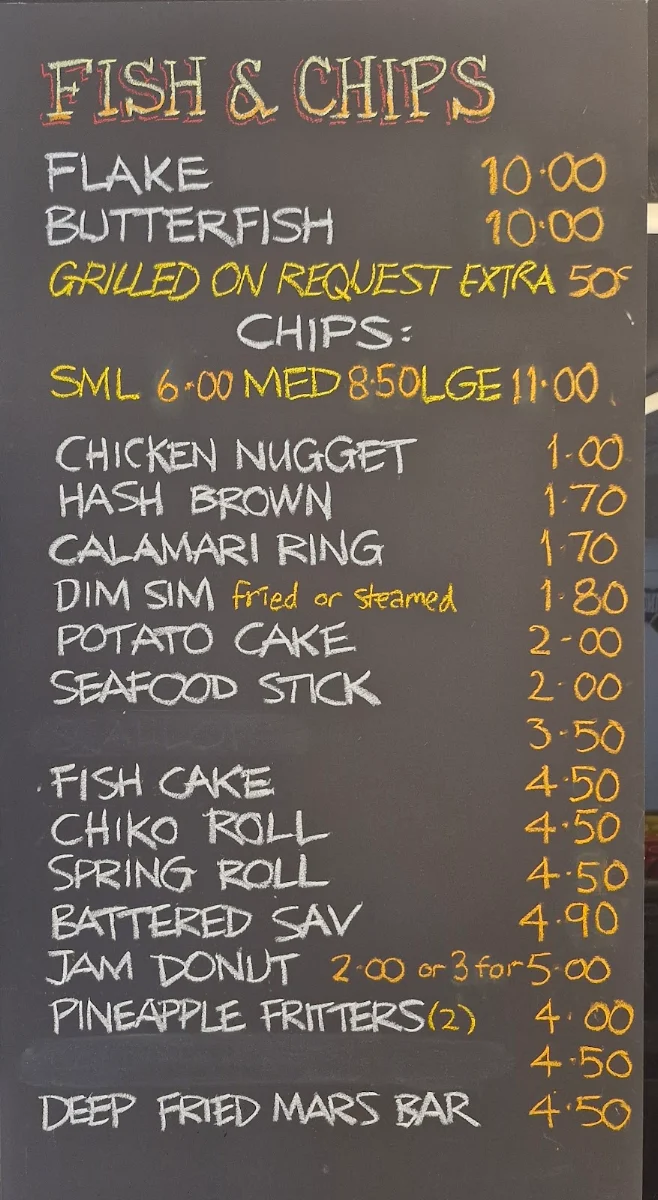 FISH & CHIPS
FLAKE 10·00
BUTTERFISH 10·00
GRILLED ON REQUEST EXTRA 50c
CHIPS:
SML 6·00 MED 8·50 LGE 11·00
CHICKEN NUGGET 1·00
HASH BROWN 1·70
CALAMARI RING 1·70
DIM SIM fried or steamed 1·80
POTATO CAKE 2-00
SEAFOOD STICK 2·00
3·50
FISH CAKE 4·50
CHIKO ROLL 4·50
SPRING ROLL 4·50
BATTERED SAV 4·90
JAM DONUT 2·00 or 3 for 5·00
PINEAPPLE FRITTERS (2) 4·00
4·50
DEEP FRIED MARS BAR 4·50